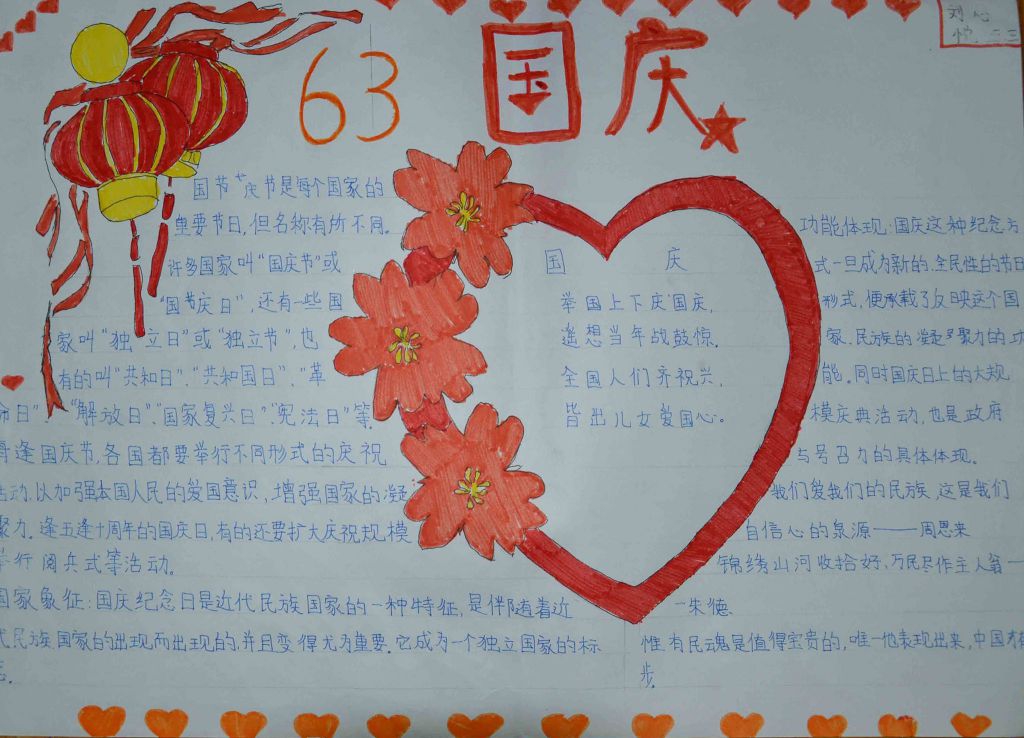 63 国庆
刘心
国节庆节是每个国家的
重要节日,但名称有所不同。
许多国家叫“国庆节”或
“国节庆日”,还有一些国
家叫“独立日”或“独立节”,也
有的叫“共和日”、“共和国日”、“革
命日”、“解放日”、“国家复兴日”、“宪法日”等。
每逢国庆节,各国都要举行不同形式的庆祝
活动,以加强本国人民的爱国意识,增强国家的凝
聚力。逢五逢十周年的国庆日,有的还要扩大庆祝规模
举行阅兵式等活动。
国家象征:国庆纪念日是近代民族国家的一种特征,是伴随着近
代民族国家的出现而出现的,并且变得尤为重要。它成为一个独立国家的标
志。
国 庆
举国上下庆国庆,
遥想当年战鼓惊。
全国人们齐祝兴,
皆出儿女爱国心。
功能体现:国庆这种纪念方
式一旦成为新的、全民性的节日
形式,便承载了反映这个国
家、民族的凝聚力的功
能。同时国庆日上的大规
模庆典活动,也是政府
与号召力的具体体现。
我们爱我们的民族,这是我们
自信心的泉源——周恩来
锦绣山河收拾好,万民尽作主人翁—
—朱德
惟有民魂是值得宝贵的,唯一他表现出来,中国才有
步。